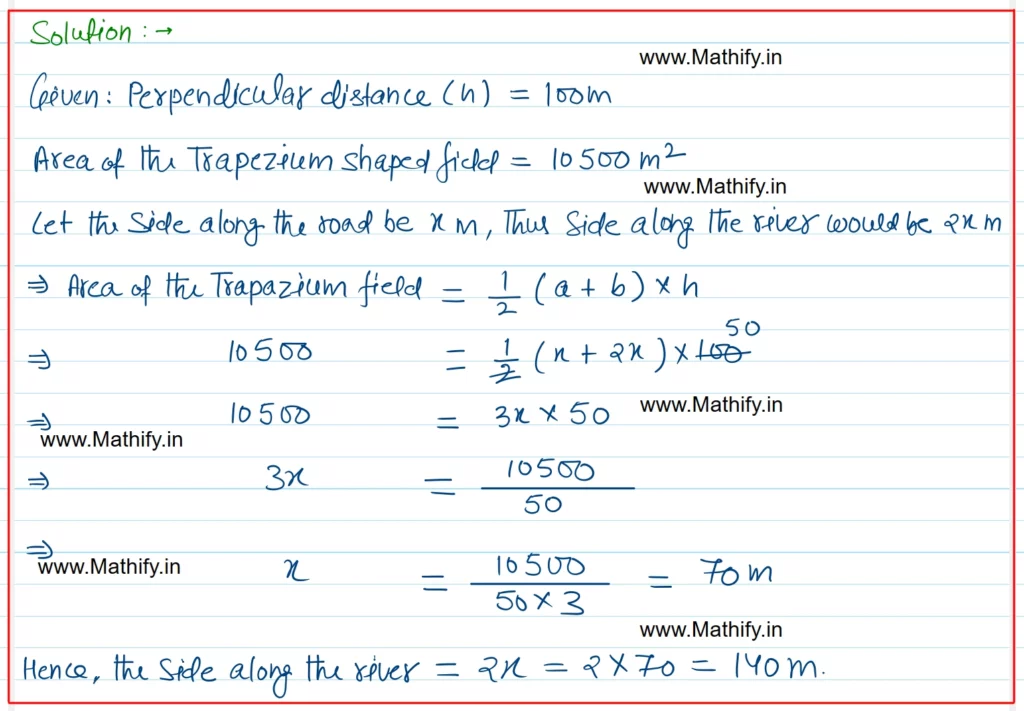 Solution : →
www.Mathify.in
Given: Perpendicular distance (h) = 100m
Area of the Trapezium shaped field = 10500 m²
www.Mathify.in
Let the Side along the road be x m, Thus Side along the river would be 2x m
⇒ Area of the Trapazium field = 1/2 (a + b) × h
50
⇒ 10500 = 1/2 (x + 2x) × 100
⇒ 10500 = 3x × 50
www.Mathify.in
www.Mathify.in
⇒ 3x = 10500/50
⇒ x = 10500/50×3 = 70m
www.Mathify.in
www.Mathify.in
Hence, the Side along the river = 2x = 2×70 = 140m.